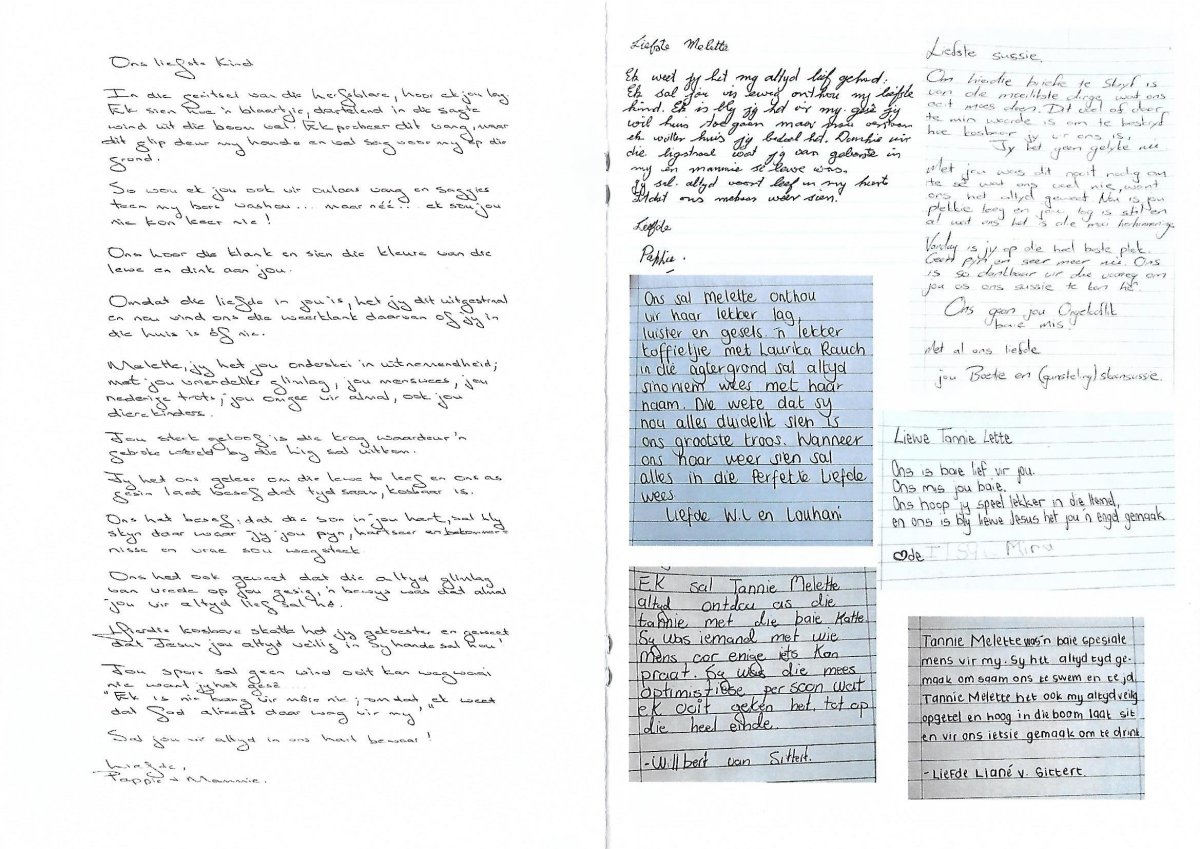 Ons liefste Kind
In die geritsel van die herfsblare, hoor ek jou lag.
Ek sien hoe 'n blaartjie, dartelend in die sagte
wind uit die boom val. Ek probeer dit vang, maar
dit glip deur my hande en val sag voor my op die
grond.
So wou ek jou ook vir oulaas vang en saggies
teen my bors vashou... maar néé... ek sou jou
nie kon keer nie!
Ons hoor die klank en sien die kleure van die
lewe en dink aan jou.
Omdat die liefde in jou is, het jy dit uitgestraal
en nou vind ons die weerklank daarvan of jy in
die huis is óf nie.
Melette, jy het jou onderskei in uitnemendheid;
met jou vriendelike glimlag, jou menswees, jou
nederige trots, jou omgee vir almal, ook jou
dierekinders.
Jou sterk geloof is die krag waardeur 'n
gebroke wêreld by die lig sal uitkom.
Jy het ons geleer om die lewe te leef en ons as
gesin laat besef dat tyd saam, kosbaar is.
Ons het besef dat die son in jou hart, sal bly
skyn daar waar jy jou pyn, hartseer en bekommer-
nisse en vrae sou wegsteek.
Ons het ook geweet dat die altyd glimlag
van vrede op jou gesig, 'n bewys was dat almal
jou vir altyd lief sal hê.
Hierdie kosbare skatte het jy gekoester en geweet
dat Jesus jou altyd veilig in Sy hande sal hou!
Jou spore sal geen wind ooit kan wegwaai
nie want jy het gesê...
"Ek is nie bang vir môre nie; omdat, ek weet
dat God alreeds daar wag vir my."
Sal jou vir altyd in ons hart bewaar!
Liefde,
Pappie + Mammie.
Liefste Melette
Ek weet jy het my altyd lief gehad.
Ek sal jou vir ewig onthou my liefste
kind. Ek is bly jy het vir my gesê jy
wil huis toe gaan maar nou verstaan
ek watter huis jy bedoel het. Dankie vir
die ligstraal wat jy van geboorte in
my en mammie se lewe was.
Jy sal altyd voort leef in my harte
totdat ons mekaar weer sien.
Liefde
Pappie.
Liefste sussie,
Om hierdie briefie te skryf is
van die moeilikste dinge wat ons
ooit moes doen. Dit voel of daar
te min woorde is om te beskryf
hoe kosbaar jy vir ons is,
Jy het geen gelyke nie.
Met jou was dit nooit nodig om
te sê wat ons voel nie, want
ons het altyd geweet. Nou is jou
plekkie leeg en jou lag is stil en
al wat ons het is die mooi herinneringe
Vandag is jy op die heel beste plek.
Geen pyn en seer meer nie. Ons
is so dankbaar vir die voorreg om
jou as ons sussie te kon hê.
Ons gaan jou Ongelooflik
baie mis.
Met al ons liefde
jou Boetie en (gunsteling) skoonsussie.
Ons sal Melette onthou
vir haar lekker lag,
luister en gesels. 'n lekker
koffietjie met Laurika Rauch
in die agtergrond sal altyd
sinoniem wees met haar
naam. Die wete dat sy
nou alles duidelik sien is
ons grootste troos. Wanneer
ons haar weer sien sal
alles in die Perfekte Liefde
wees
Liefde W.L en Louhani
Liewe Tannie Lette
Ons is baie lief vir jou.
Ons mis jou baie.
Ons hoop jy speel lekker in die Hemel,
en ons is bly liewe Jesus het jou 'n engel gemaak
♡de Mira
Ek sal Tannie Melette
altyd ontdou as die
tannie met die baie Katte.
Sy was iemand met wie
mens oor enige iets kan
praat. Sy was die mees
optimistiese persoon wat
ek ooit geken het, tot op
die heel einde.
-Willbert van Sittert.
Tannie Melette was 'n baie spesiale
mens vir my. Sy het altyd tyd ge-
maak om saam ons te swem en te jol.
Tannie Melette het ook my altyd veilig
opgetel en hoog in die boom laat sit
en vir ons ietsie gemaak om te drink.
-Liefde Liané v. Sittert.